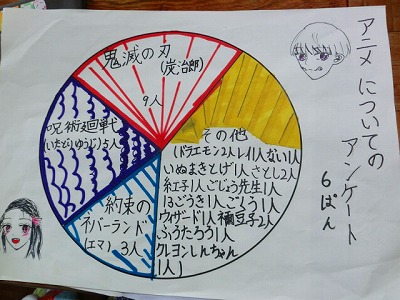 アニメについての
アンケート
6ぱん
鬼滅の刃
(炭治郎)
9人
呪術廻戦
(いたどりゆうじ)5人
約束の
ネバーランド
(エマ) 3人
その他
(ドラエモン2人レイ1人ない1人
いぬまきとげ1人さとし2人
紅子1人ごじょう先生1人
13ごうき1人ごくう1人
ウィザード1人禰豆子2人
ふうたろう1人
クレヨンしんちゃん
1人)